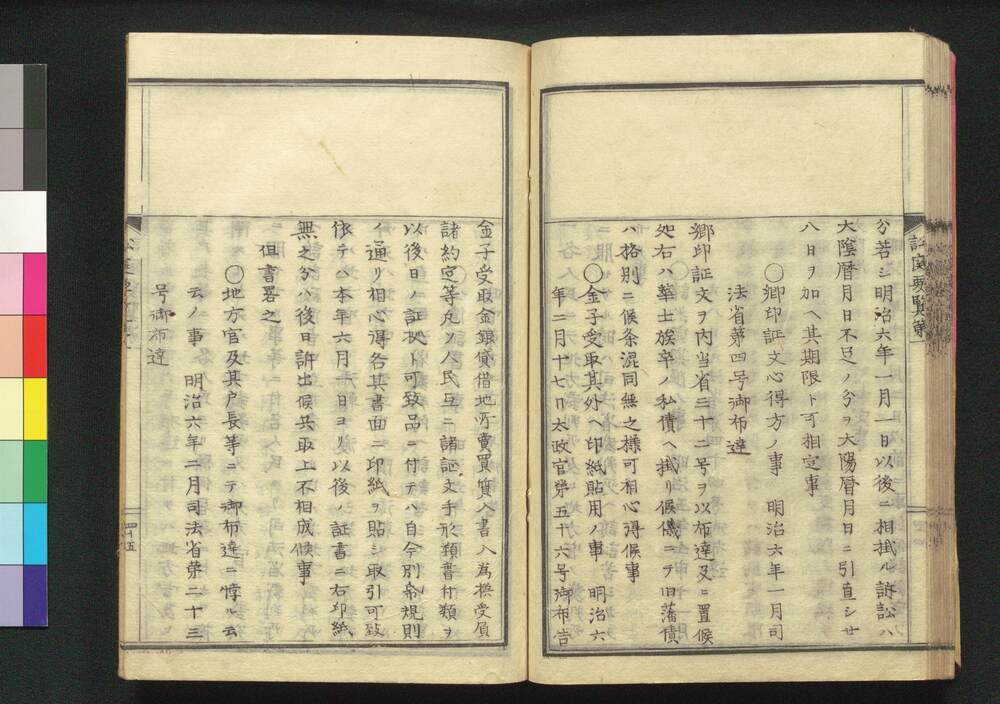 分若シ明治六年一月一日以後ニ相掛ル訴訟ハ
大陰暦月日不足ノ分ヲ大陽暦月日ニ引直シ廿
八日ヲ加ヘ其期限ト可相定事
〇郷印証文心得方ノ事 明治六年一月司
法省第四号御布達
郷印証文ヲ内当省三十二号ヲ以布達及ニ置候
処右ハ華士族卒ノ私債ヘ掛リ候儀ニテ旧藩債
ハ格別ニ候条混同無之様可相心得候事
〇金子受取其外ヘ印紙貼用ノ事 明治六
年二月十七日太政官第五十六号御布告
金子受取金銀貸借地所賣買質入書入為換受負
諸約定等凡ソ人民互ニ諸証文手形類書付類ヲ
以後日ノ証拠ト可致品ニ付テハ自今別冊規則
ノ通リ相心得各其書面ニ印紙ヲ貼シ取引可致
依テハ本年六月一日ヨリ以後ノ証書ニ右印紙
無之分ハ後日訴出候共取上不相成候事
但書畧之
〇地方官及其戸長等ニテ御布達ニ悖ル云
云ノ事 明治六年二月司法省第二十三
号御布達
四十五